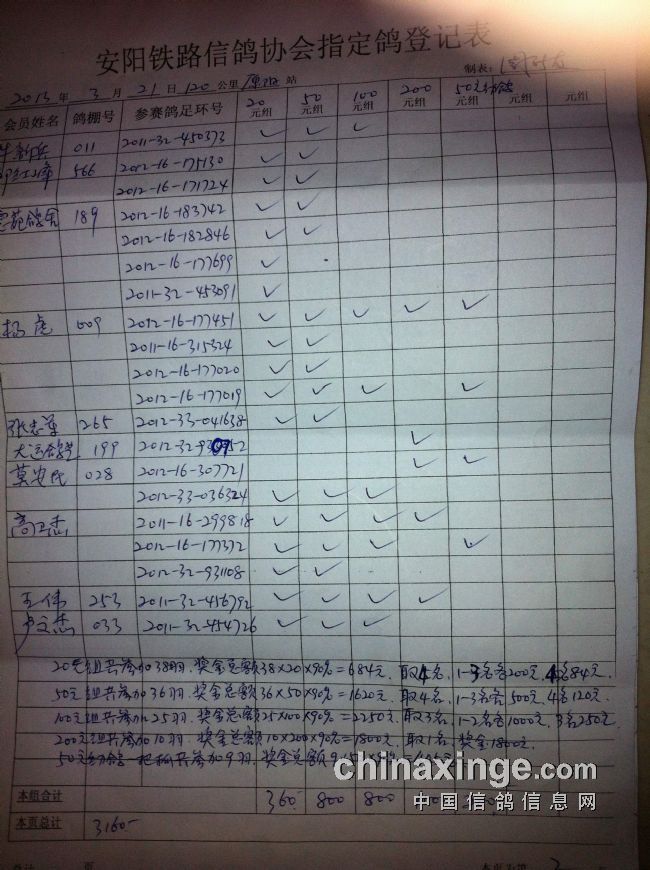 安阳铁路信鸽协会指定鸽登记表
制表:
2013年 3月 21日 120公里 原阳 站
会员姓名 鸽棚号 参赛鸽足环号 20元组 50元组 100元组 200元组 50元 元组 元组
011 2011-32-450373 ✓ ✓ ✓
566 2012-16-175130 ✓ ✓
2012-16-171724 ✓ ✓
189 2012-16-183742 ✓ ✓
2012-16-182846 ✓ ✓
2012-16-177699 ✓
2011-32-453091 ✓
杨虎 009 2012-16-177451 ✓ ✓ ✓ ✓ ✓
2011-16-315324 ✓ ✓
2012-16-177020 ✓ ✓
2012-16-177019 ✓ ✓ ✓ ✓
张志军 265 2012-33-041638 ✓ ✓
199 2012-32-930952 ✓
莫安民 028 2012-16-307721 ✓ ✓
2012-33-036324 ✓ ✓ ✓
高卫杰 2011-16-299818 ✓ ✓ ✓ ✓
2012-16-177372 ✓ ✓ ✓ ✓
2012-32-931108 ✓ ✓
王伟 253 2011-32-456792 ✓ ✓ ✓ ✓
卢文杰 033 2011-32-454726 ✓ ✓ ✓
20元组共参加38羽.奖金总额38×20×90%=684元.取4名.1-3名各200元.4名84元.
50元组共参加36羽.奖金总额36×50×90%=1620元.取4名.1-3名各500元.4名120元.
100元组共参加25羽.奖金总额25×100×90%=2250元.取3名.1-2名各1000元.3名250元.
200元组共参加10羽.奖金总额10×200×90%=1800元.取1名.奖金1800元.
50元 共参加9羽.奖金总额
chinaxinge.com
中国信鸽信息网
本组合计 360- 800 800
本页总计 3160-